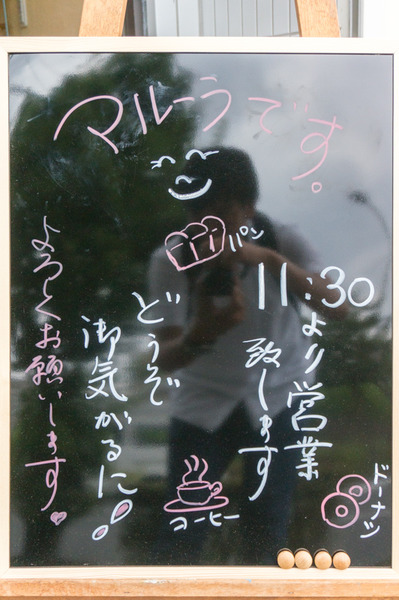 マルーラです。
パン
11:30
より営業
致します
どうぞ
御気がるに!
よろしくお願いします
コーヒー
ドーナツ